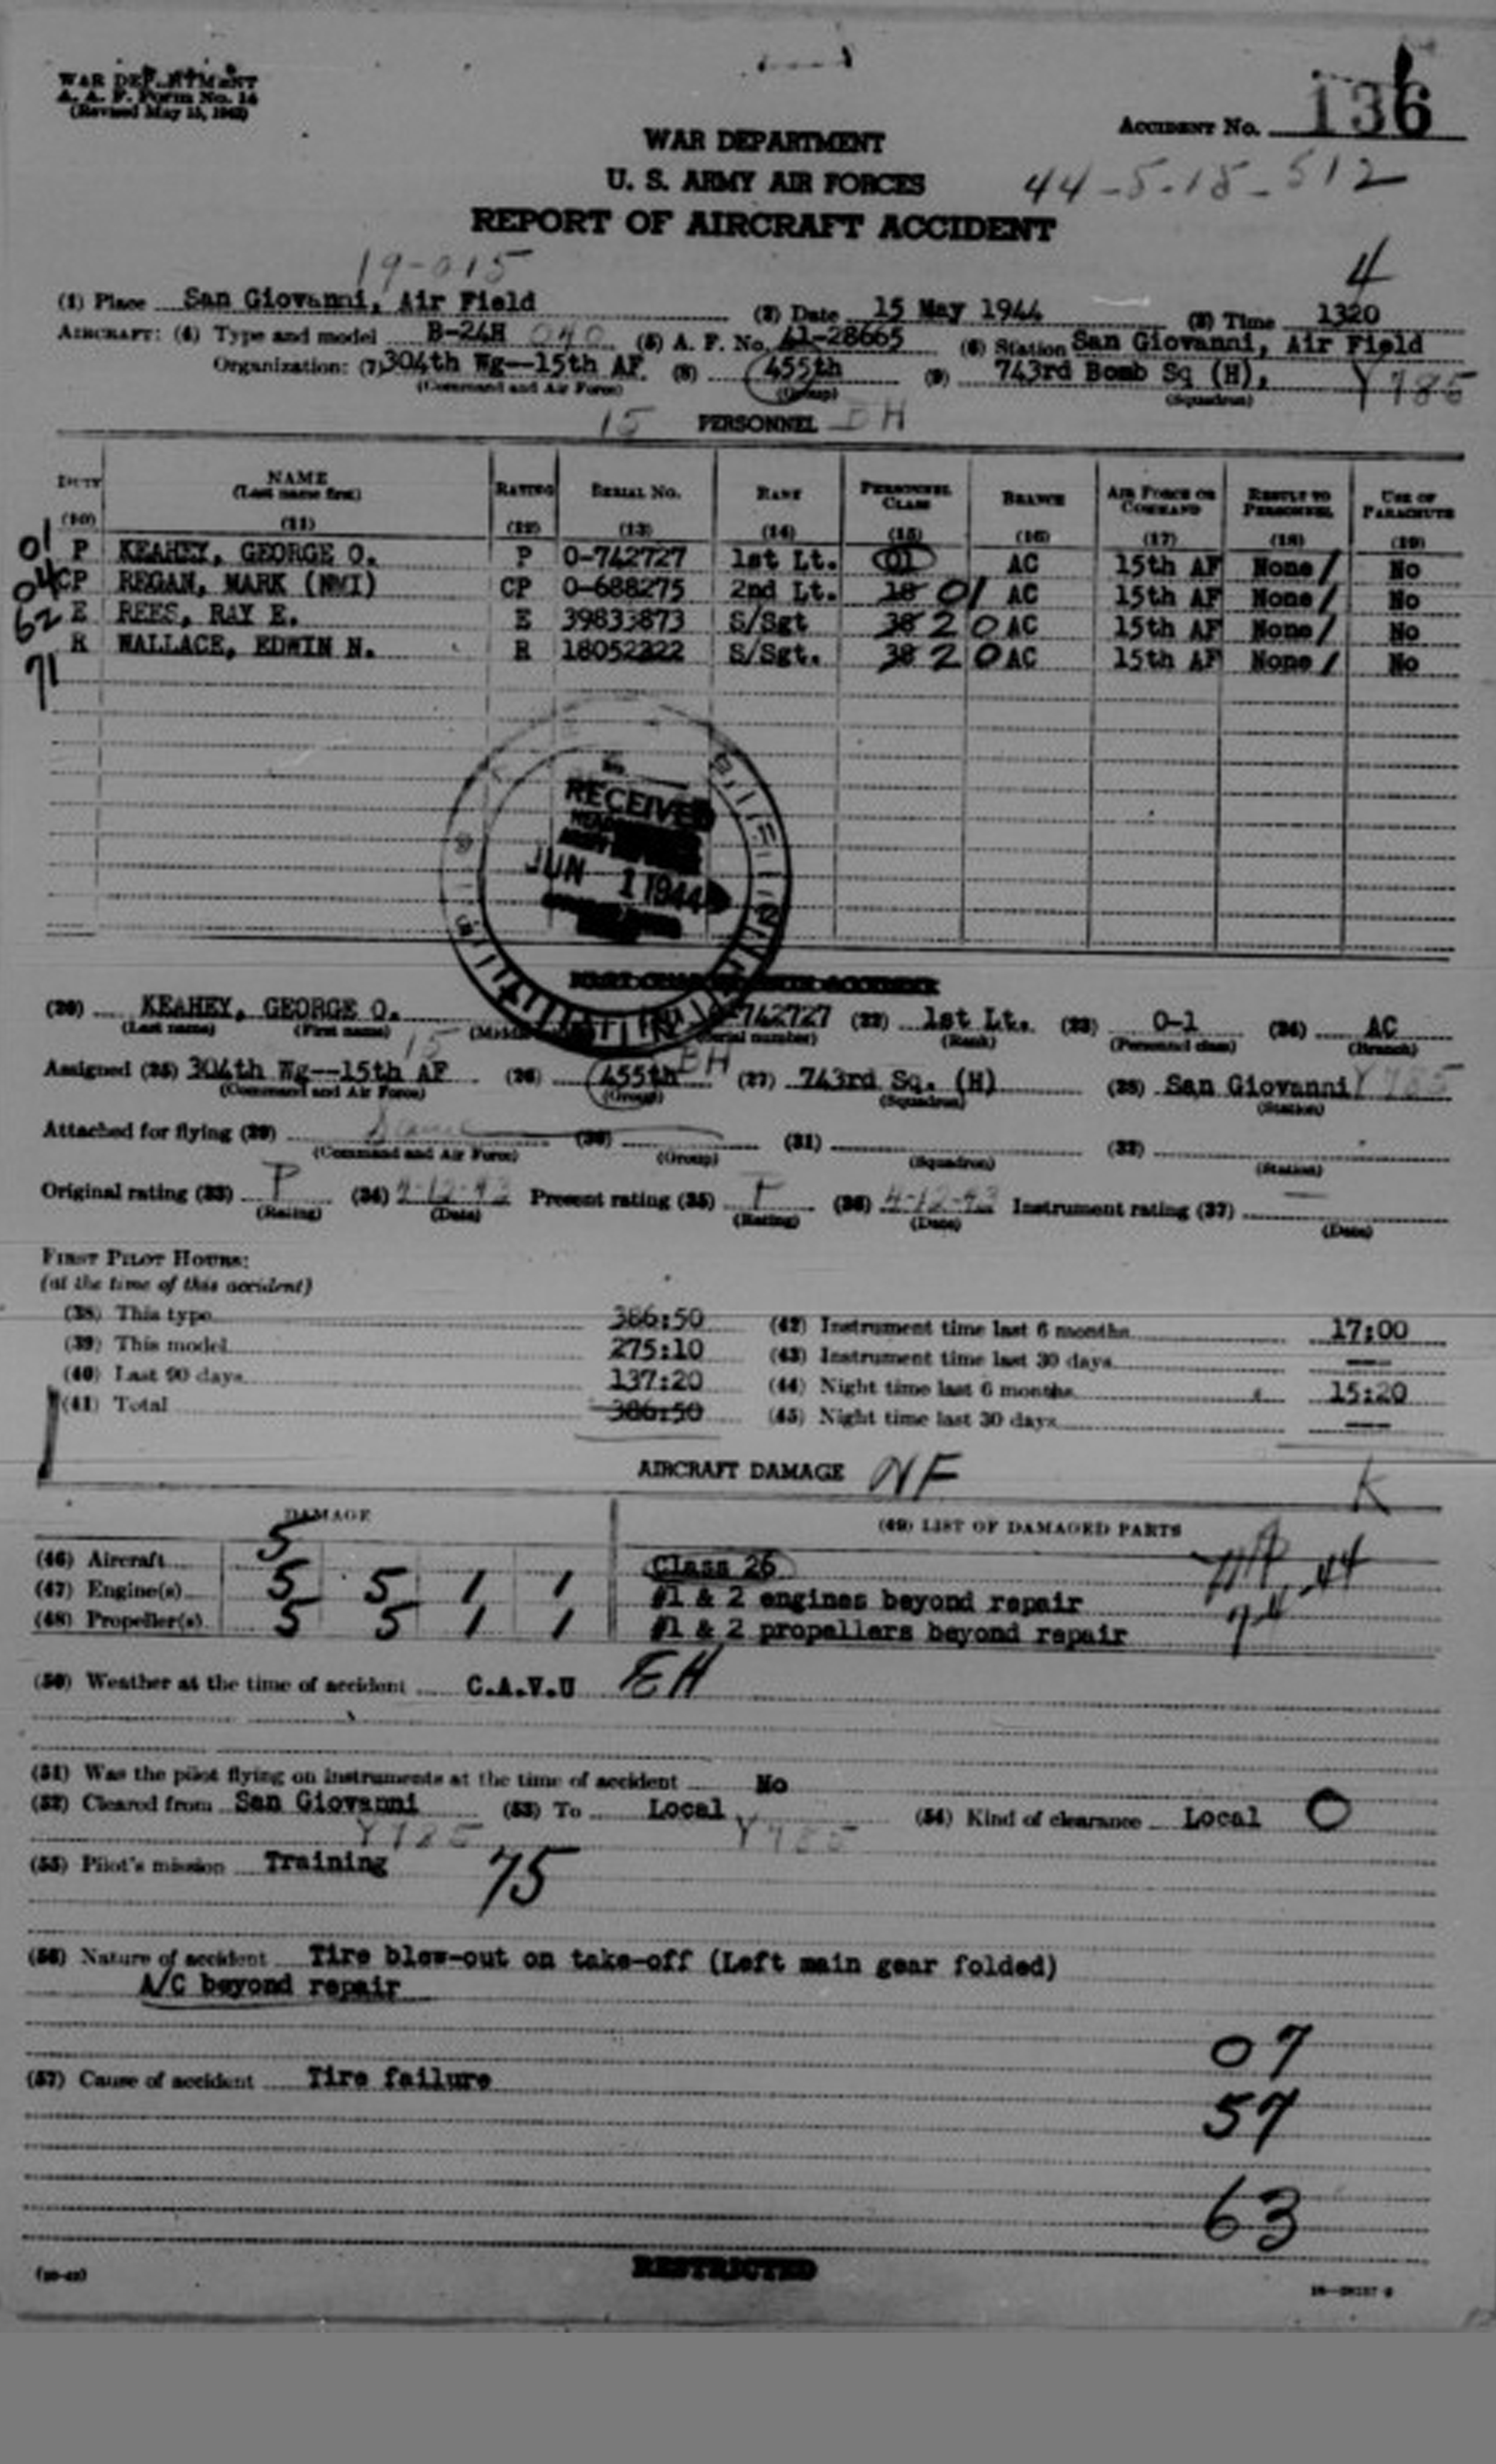 WAR DEPARTMENT
A. A. F. Form No. 14
(Revised May 15, 1942)
ACCIDENT No. 136
WAR DEPARTMENT
U. S. ARMY AIR FORCES
44-5-15-512
REPORT OF AIRCRAFT ACCIDENT
19-015
4
(1) Place San Giovanni, Air Field (2) Date 15 May 1944 (3) Time 1320
AIRCRAFT: (4) Type and model B-24H 040 (5) A. F. No. 41-28665 (6) Station San Giovanni, Air Field
Organization: (7) 304th Wg--15th AF (8) 455th (9) 743rd Bomb Sq (H), Y785
(Command and Air Force) (Group) (Squadron)
15 PERSONNEL BH
DUTY NAME (Last name first) RATING SERIAL No. RANK PERSONNEL CLASS BRANCH AIR FORCE OR COMMAND RESULT TO PERSONNEL USE OF PARACHUTE
(10) (11) (12) (13) (14) (15) (16) (17) (18) (19)
01 P KEAHEY, GEORGE O. P O-742727 1st Lt. 01 AC 15th AF None/ No
04 CP REGAN, MARK (NMI) CP O-688275 2nd Lt. 18 01 AC 15th AF None/ No
62 E REES, RAY E. E 39833873 S/Sgt 38 20 AC 15th AF None/ No
71 R WALLACE, EDWIN N. R 18052322 S/Sgt. 38 20 AC 15th AF None/ No
RECEIVED
JUN 1 1944
(20) KEAHEY, GEORGE O. 742727 (22) 1st Lt. (23) O-1 (24) AC
(Last name) (First name) (Serial number) (Rank) (Personnel class) (Branch)
15 BH
Assigned (25) 304th Wg--15th AF (26) 455th (27) 743rd Sq. (H) (28) San Giovanni Y785
(Command and Air Force) (Group) (Squadron) (Station)
Attached for flying (29) Same (30) (31) (32)
(Command and Air Force) (Group) (Squadron) (Station)
Original rating (33) P (34) 4-12-43 Present rating (35) P (36) 4-12-43 Instrument rating (37) —
(Rating) (Date) (Rating) (Date) (Date)
FIRST PILOT HOURS:
(at the time of this accident)
(38) This type 386:50 (42) Instrument time last 6 months 17:00
(39) This model 275:10 (43) Instrument time last 30 days —
(40) Last 90 days 137:20 (44) Night time last 6 months 15:20
(41) Total 386:50 (45) Night time last 30 days —
AIRCRAFT DAMAGE NF K
DAMAGE (49) LIST OF DAMAGED PARTS
(46) Aircraft 5 Class 26
(47) Engine(s) 5 5 1 1 #1 & 2 engines beyond repair
(48) Propeller(s) 5 5 1 1 #1 & 2 propellers beyond repair
(50) Weather at the time of accident C.A.V.U EH
(51) Was the pilot flying on instruments at the time of accident No
(52) Cleared from San Giovanni (53) To Local (54) Kind of clearance Local O
Y785 Y785
(55) Pilot's mission Training 75
(56) Nature of accident Tire blow-out on take-off (Left main gear folded)
A/C beyond repair
07
(57) Cause of accident Tire failure
57
63
RESTRICTED